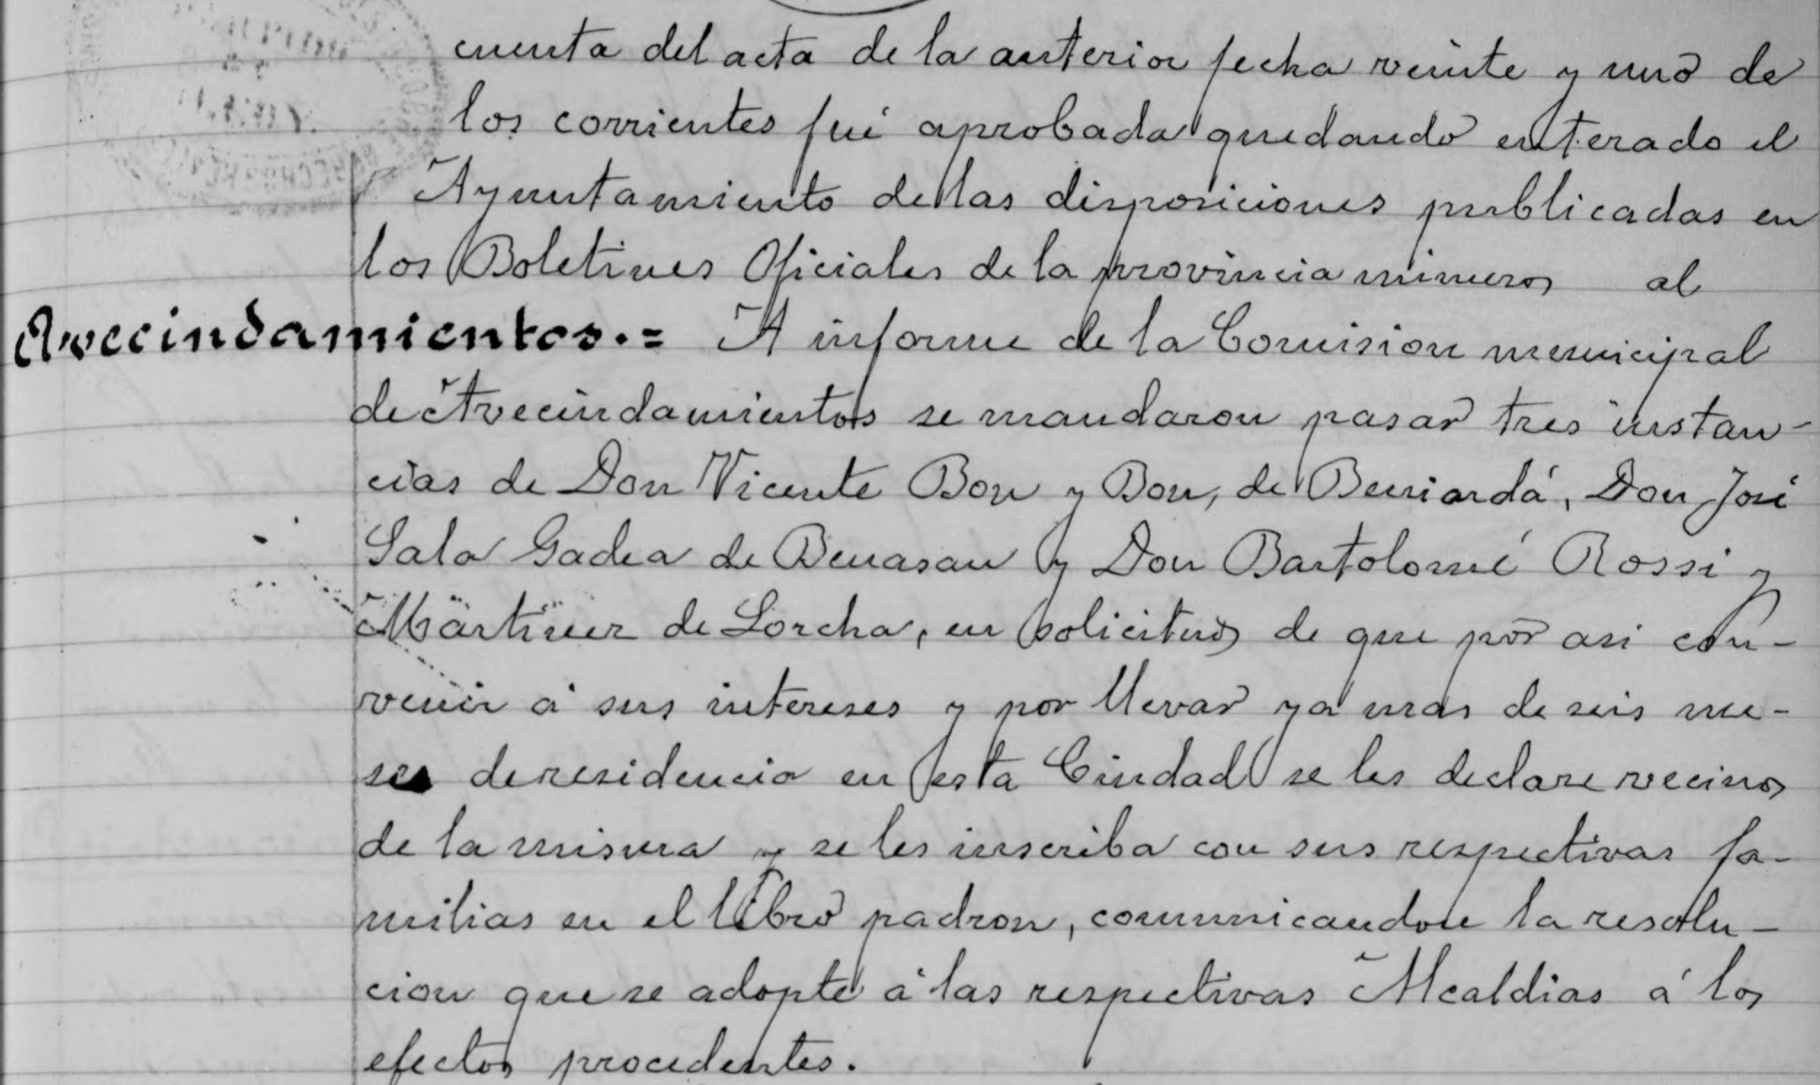 cuenta del acta de la anterior fecha veinte y uno de
los corrientes fué aprobada quedando enterado el
Ayuntamiento de las disposiciones publicadas en
los Boletines Oficiales de la provincia números al
Avecindamientos.= A informe de la Comision municipal
de Avecindamientos se mandaron pasar tres instan-
cias de Don Vicente Bou y Bou, de Beniardá, Don José
Sala Gadea de Benasau y Don Bartolomé Rossi y
Martinez de Lorcha, en solicitud de que por asi con-
venir á sus intereses y por llevar ya mas de seis me-
ses de residencia en esta Ciudad se les declare vecinos
de la misma y se les inscriba con sus respectivas fa-
milias en el libro padron, comunicandose la resolu-
cion que se adopte á las respectivas Alcaldias á los
efectos procedentes.